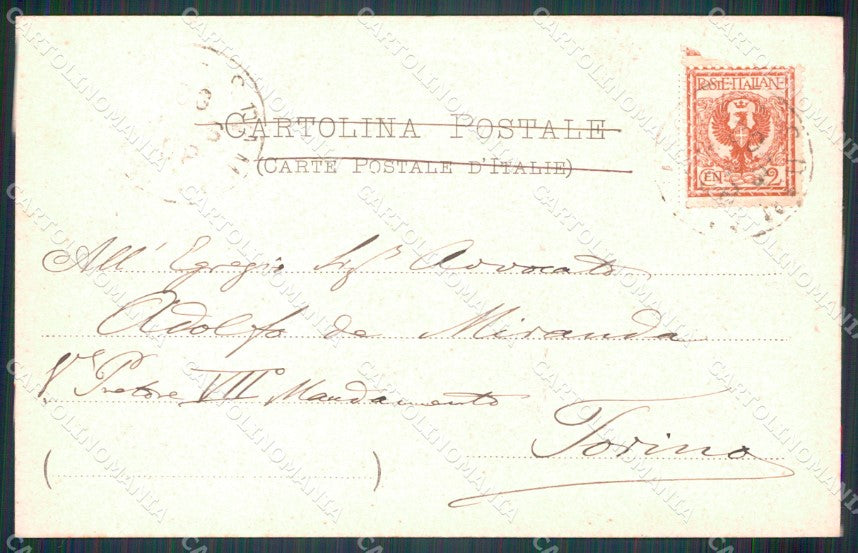 CARTOLINA POSTALE
(CARTE POSTALE D'ITALIE)
POSTE·ITALIANE
CEN 2
All' Egregio Sigr Avvocato
Adolfo de Miranda
Ve Pretore VIIo Mandamento
Torino
( )
CARTOLINOMANIA